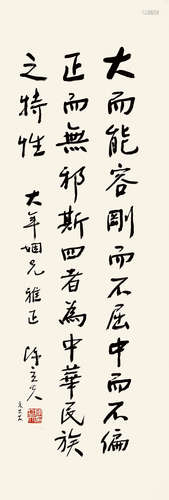 大而能容剛而不屈中而不偏
正而無邪斯四者為中華民族
之特性
大年姻兄雅正
陳立夫